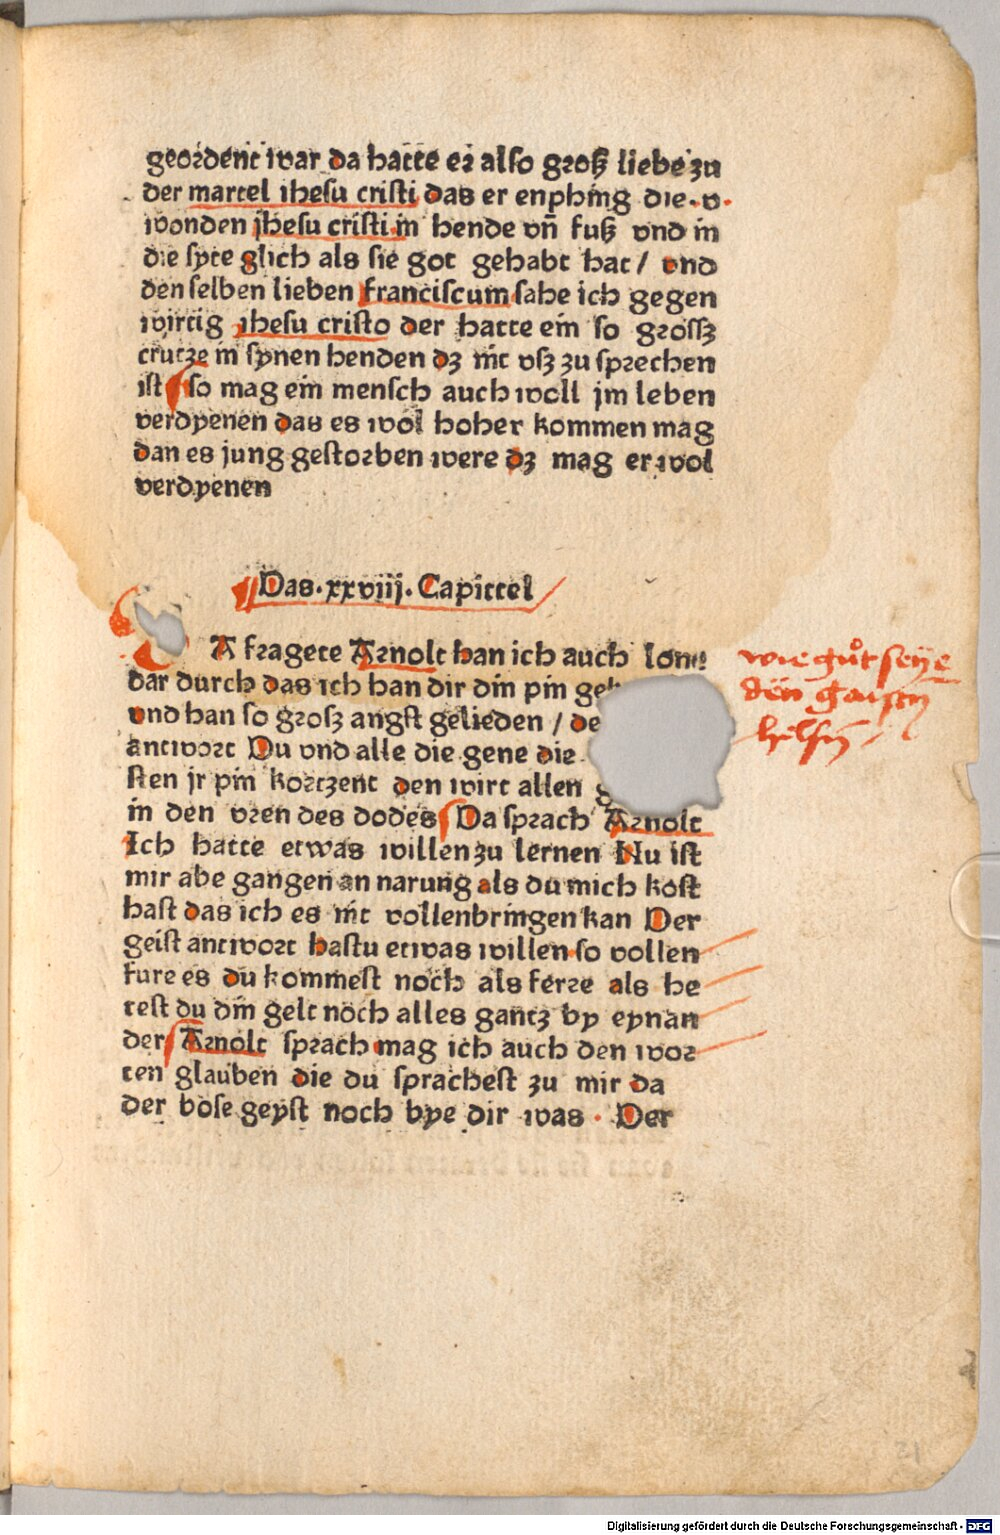 geordent war da hatte er also groß liebe zu
der martel ihesu cristi das er enphing die .v.
wonden jhesu cristi in hende vn̄ fuß vnd in
die syte glich als sie got gehabt hat / vnd
den selben lieben franciscum sahe ich gegen
wirtig ihesu cristo der hatte ein so grossz
crutze in synen henden dz nit vsz zu sprechen
ist so mag ein mensch auch woll jm leben
verdyenen das es wol hoher kommen mag
dan es jung gestorben were dz mag er wol
verdyenen
Das .xxviij. Capittel
A fragete Arnolt han ich auch lone
dar durch das ich han dir din pin
vnd han so grosz angst gelieden / de
antwort Du vnd alle die gene die
sten jr pin kortzent den wirt allen
in den vren des dodes Da sprach Arnolt
Ich hatte etwas willen zu lernen Nu ist
mir abe gangen an narung als du mich kost
hast das ich es nit vollenbringen kan Der
geist antwort hastu etwas willen so vollen
fure es du kommest noch als ferre als he
test du din gelt noch alles gantz by eynan
der Arnolt sprach mag ich auch den wor
ten glauben die du sprachest zu mir da
der bose geyst noch bye dir was . Der
wie gůt seye
den
helfen
21
Digitalisierung gefördert durch die Deutsche Forschungsgemeinschaft - DFG